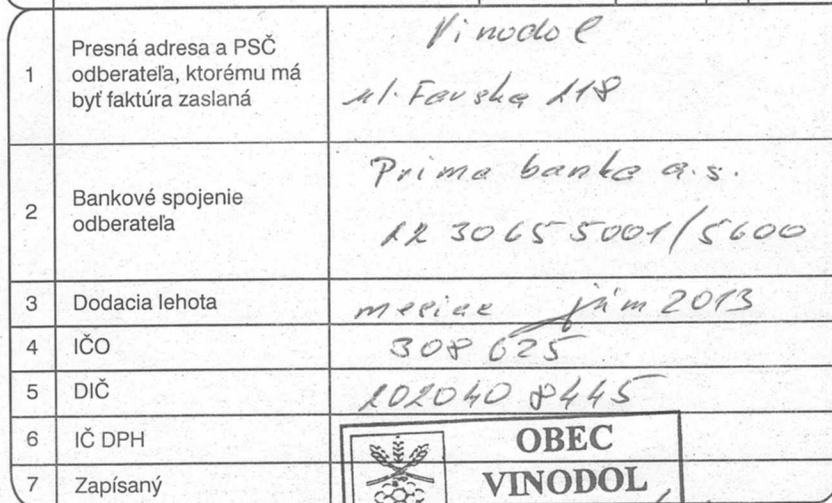 1 Presná adresa a PSČ
odberateľa, ktorému má
byť faktúra zaslaná
Vinodol
ul. 118
2 Bankové spojenie
odberateľa
Prima banka a.s.
2230655001/5600
3 Dodacia lehota mesiac jún 2013
4 IČO 308 625
5 DIČ 202040 8445
6 IČ DPH
7 Zapísaný
OBEC
VINODOL